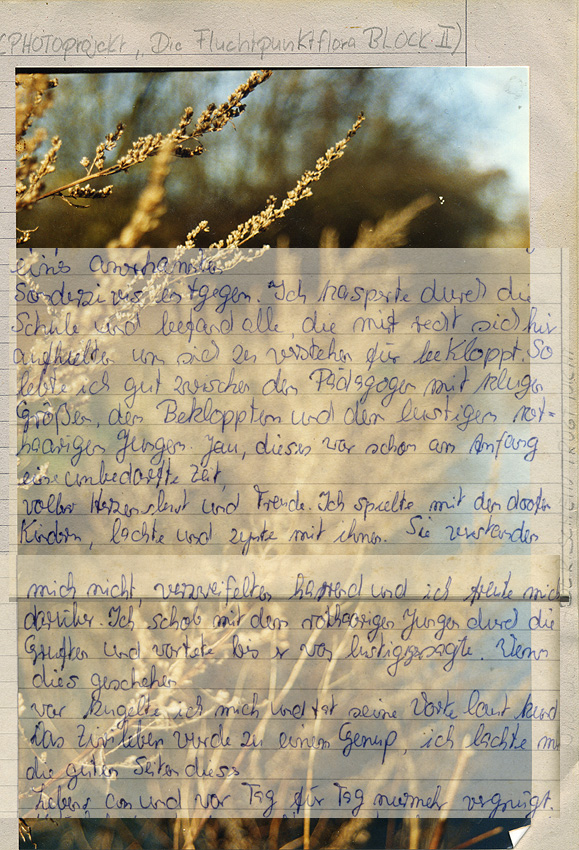 (PHOTOprojekt „Die Fluchtpunktflora BLOCK II)
eines
entgegen. Ich kasperte durch die
Schule und befand alle, die mit recht sich hir
aufhielten um sich zu verstehen für bekloppt. So
lebte ich gut zwischen den Pädagogen mit kluger
Größen, den Bekloppten und den lustigen rot=
haarigen Jungen. Jau, dieses war schon am Anfang
eine unbedarfte Zeit,
voller Herzenslust und Freude. Ich spielte mit den doofen
Kindern, lachte und mit ihnen. Sie verstanden
mich nicht, verzweifelten harrend und ich freute mich
darüber. Ich schob mit dem rothaarigen Jungen durch die
und wartete bis er was lustiges sagte. Wenn
dies geschehen
war kugelte ich mich und tat seine Worte laut kund
Das wurde zu einem Genuß, ich lachte mir
die guten Seiten dieses
Lebens an und war Tag für Tag nunmehr vergnügt.